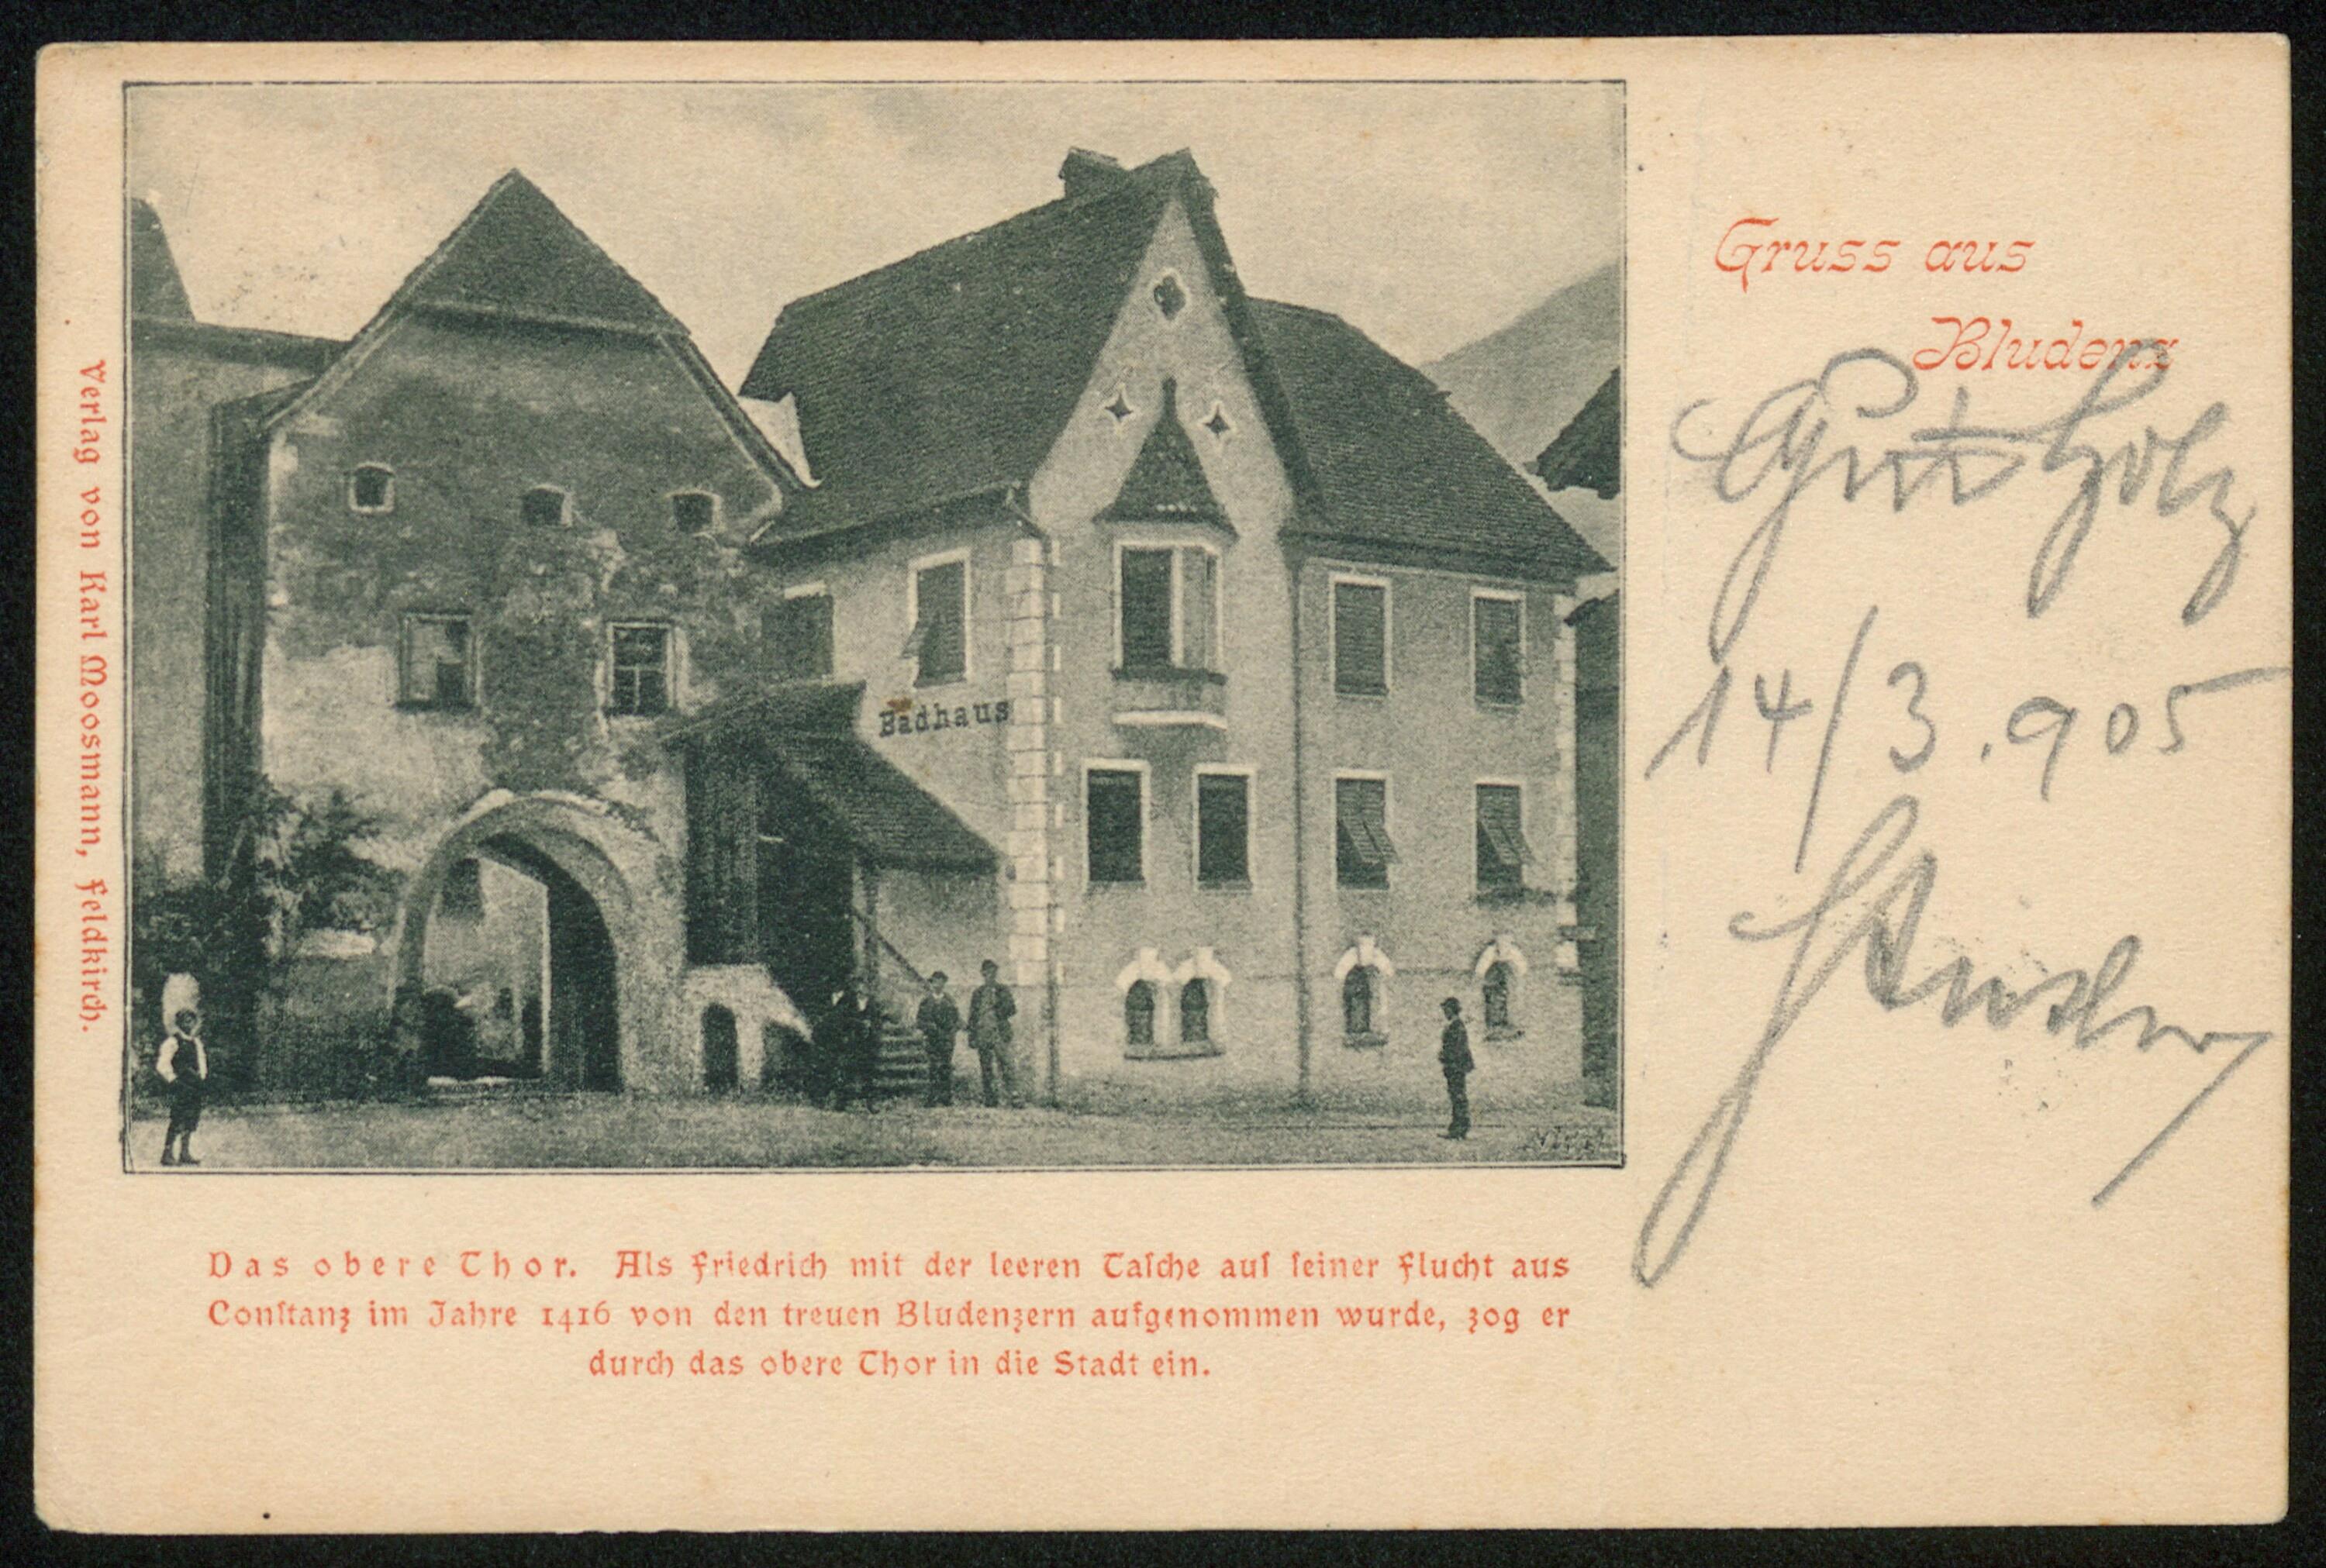 Gruss aus
Bludenz
Gut Holz
14/3.905
Verlag von Karl Moosmann, Feldkirch.
Badhaus
Das obere Thor. Als Friedrich mit der leeren Tasche auf seiner Flucht aus
Constanz im Jahre 1416 von den treuen Bludenzern aufgenommen wurde, zog er
durch das obere Thor in die Stadt ein.